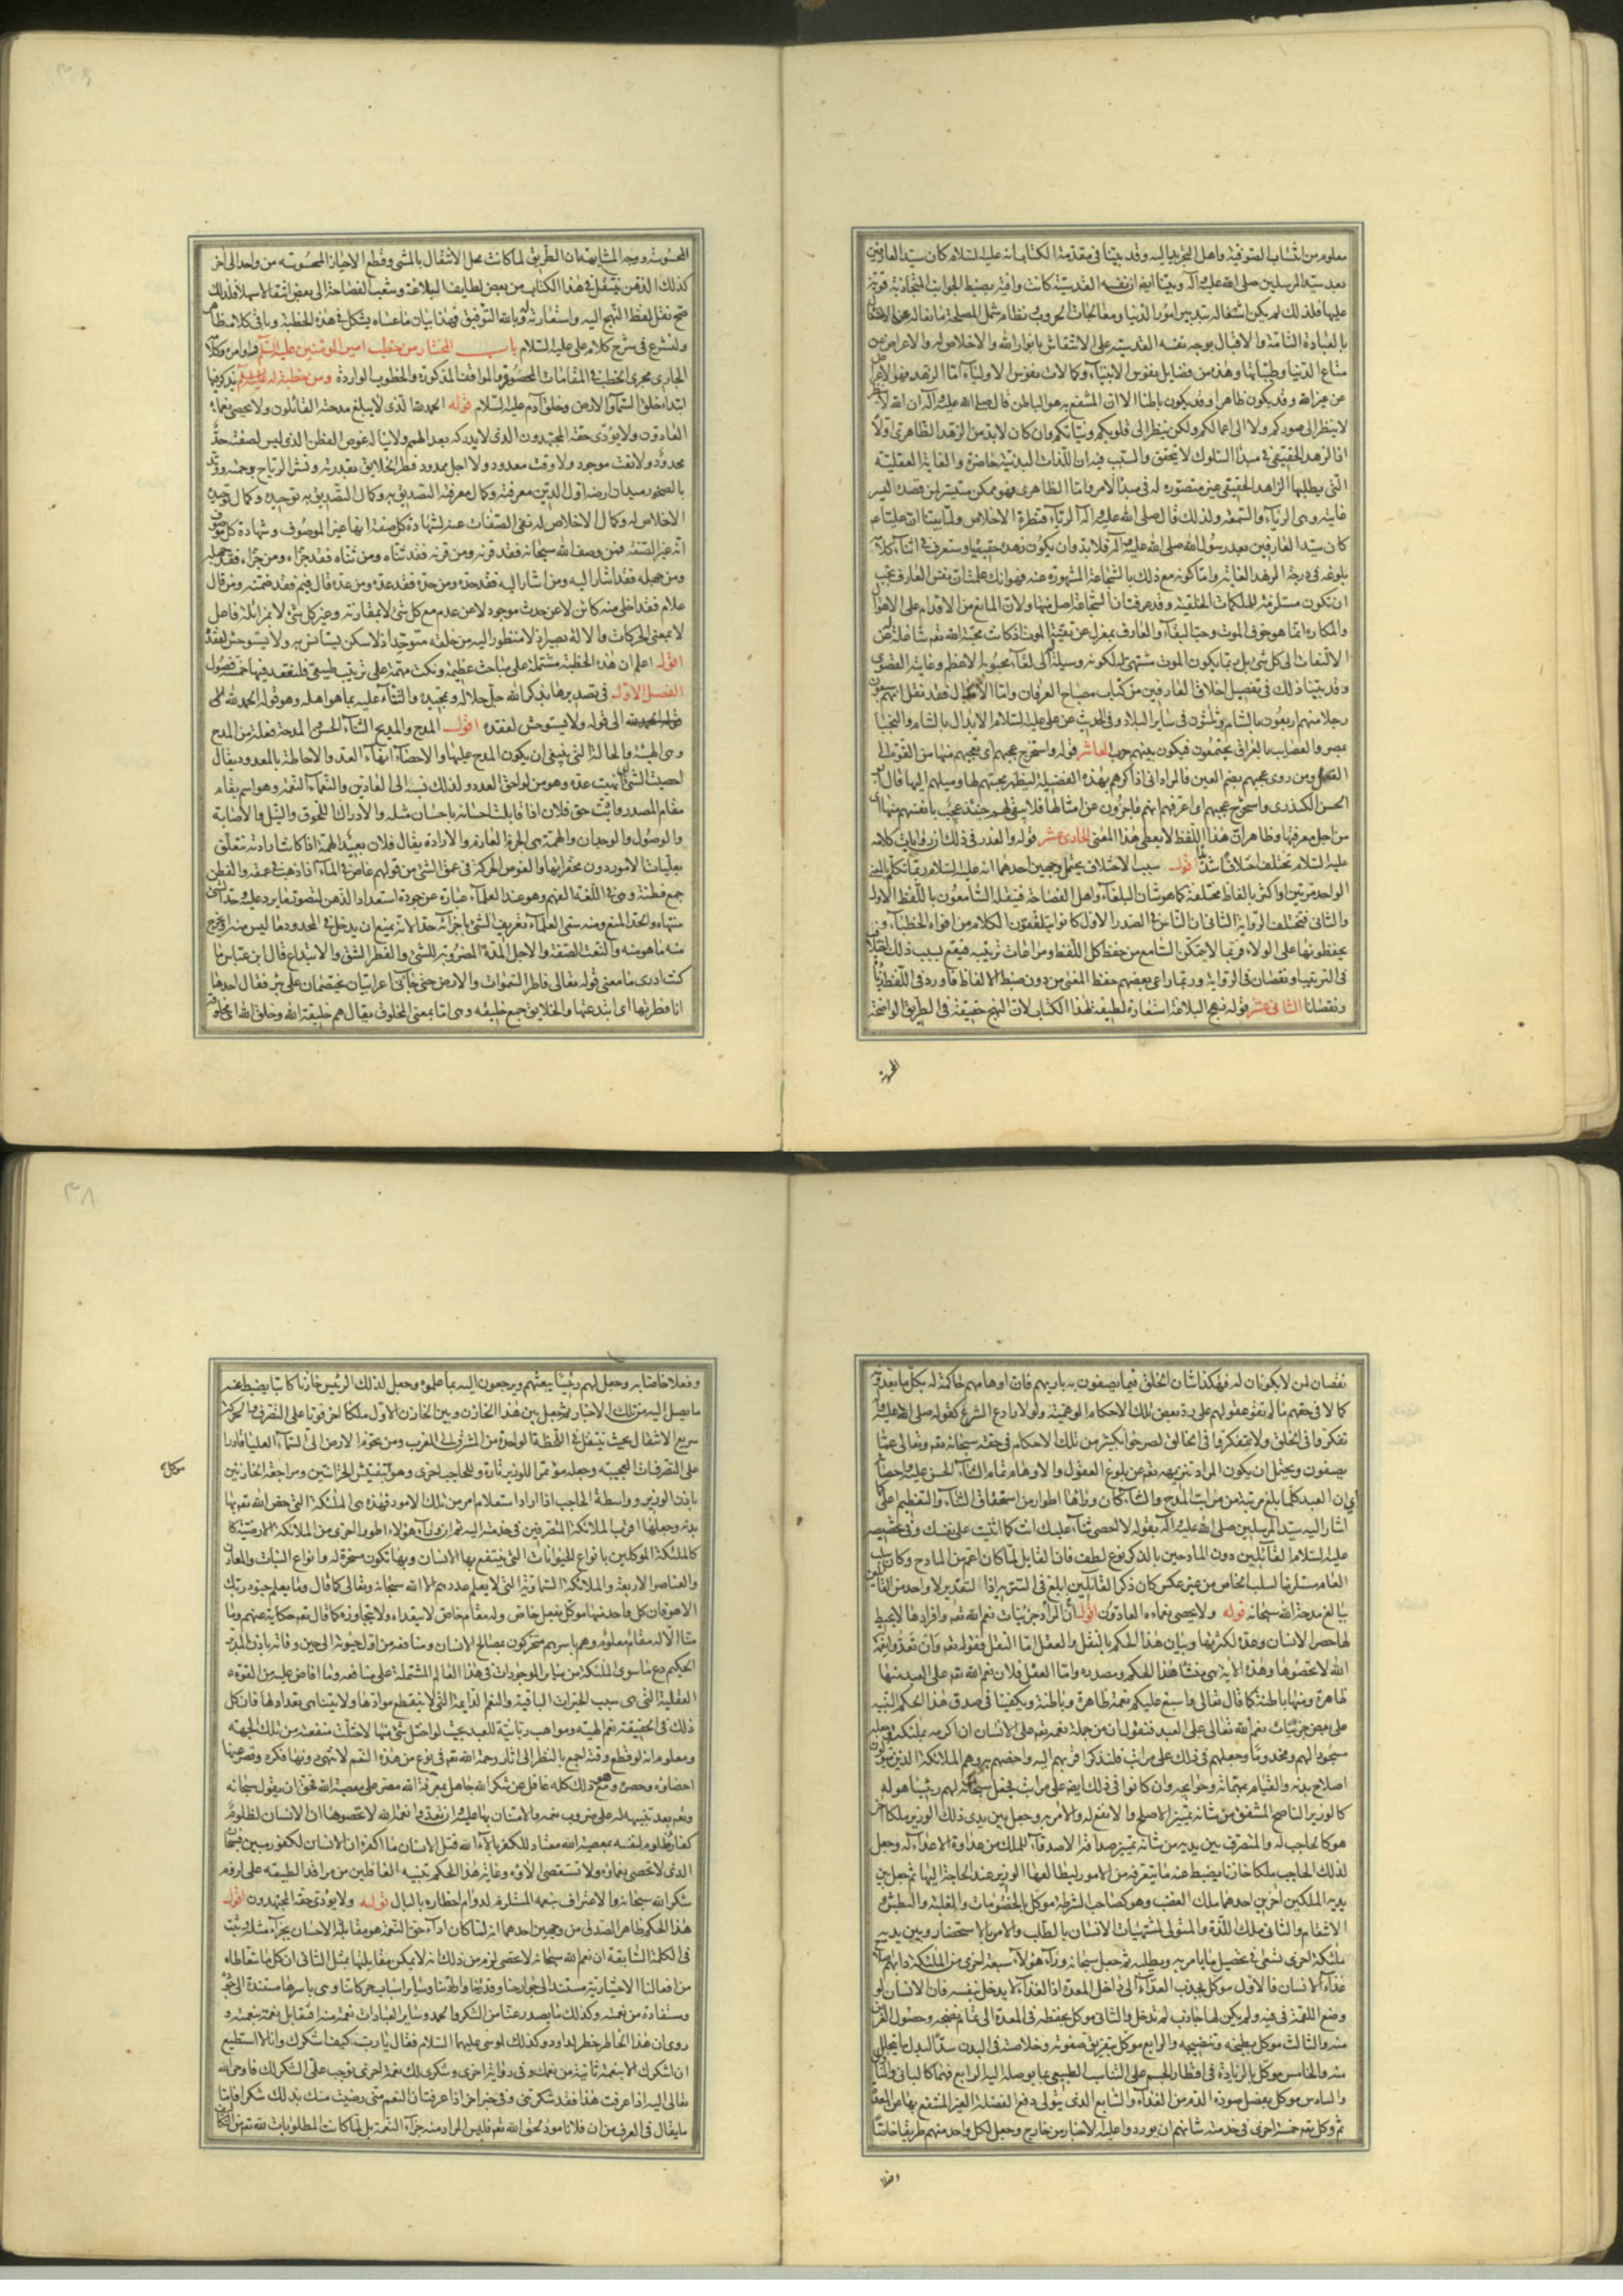 معلوم من انتساب الصوفية واهل التجريد اليه وقد بينا فى مقدمة الكتاب انه عليه السلام كان سيد العارفين
بعد سيد المرسلين صلى الله عليه وآله وبينا ايضا ان نفسه القدسية كانت وافية بضبط الجوانب المتجاذبة قوية
عليها فلذلك لم يكن اشتغاله بتدبير امور الدنيا ومعالجات الحروب ونظام شمل المصلحة مانعا له عن
بالعبادة التامة والاقبال بوجه نفسه القدسية على الانتقاش بانوار الله والاخلاص له والاعراض عن
متاع الدنيا وطيباتها وهذه من فضايل نفوس الانبياء وكمالات نفوس الاولياء اما الزهد فهو الاعراض
عن غير الله وقد يكون ظاهرا وقد يكون باطنا الا ان المنتفع به هو الباطن قال صلى الله عليه وآله ان الله
لا ينظر الى صوركم ولا الى اعمالكم ولكن ينظر الى قلوبكم ونياتكم وان كان لا بد من الزهد الظاهرى اولا
اذ الزهد الحقيقى فى مبدأ السلوك لا يتحقق والسبب فيه ان اللذات البدنية حاضرة والغاية العقلية
التى يطلبها الزاهد الحقيقى غير متصورة له فى مبدأ الامر واما الظاهرى فهو ممكن متيسر لمن قصد اليه
غايته وهى الرياء والسمعة ولذلك قال صلى الله عليه وآله الرياء قنطرة الاخلاص ولما بينا ان عليا عم
كان سيد العارفين بعد رسول الله صلى الله عليه وآله فلا بد وان يكون زهده حقيقيا وستعرف فى اثناء كلامه
بلوغه فى درجة الزهد الغاية واما كونه مع ذلك بالشجاعة المشهورة عنه فهو انك علمت ان نفس العارف يجب
ان تكون مستلزمة للملكات الخلقية وقد عرفت ان الشجاعة اصل منها ولان المانع من الاقدام على الاهوال
والمكاره انما هو خوف الموت وحب البقاء والعارف بمعزل عن تقية الموت اذ كانت محبة الله تعم شاغلة عن
الالتفات الى كل شىء بل ربما يكون الموت مشتهى له لكونه وسيلة الى لقاء محبوبه الاعظم وغايته القصوى
وقد بينا ذلك فى تفصيل اخلاق العارفين من كتاب مصباح العرفان واما الابدال فقد نقل انهم سبعون
رجلا منهم اربعون بالشام وثلثون فى ساير البلاد وفى الحديث عن على عليه السلام الابدال بالشام والنجباء
بمصر والعصايب بالعراق يجتمعون فيكون بينهم حرب العاشر قوله واستخرج عجبهم اى تعجبهم منها من القوة الى
الفعل ومن روى عجبهم بضم العين فالمراد انى اذاكرهم بهذه الفضيلة ليظهر محبتهم لها وميلهم اليها وقال
الحسن الكيذرى واستخرج عجبهم اى اعرفهم انهم عاجزون عن امثالها فلا يبقى لهم حينئذ عجب بانفسهم منها اى
من اجل معرفتها وظاهر ان هذا اللفظ لا يعطى هذا المعنى الحادى عشر قوله والعذر فى ذلك ان روايات كلامه
عليه السلام تختلف اختلافا شديدا قوله سبب الاختلاف يحتمل وجهين احدهما انه عليه السلام ربما تكلم بالمعنى
الواحد مرتين او اكثر بالفاظ مختلفة كما هو شان البلغاء واهل الفصاحة فينقله السامعون باللفظ الاول
والثانى فتختلف الرواية الثانى ان الناس فى الصدر الاول كانوا يتلقفون الكلام من افواه الخطباء و
يحفظونها على الولاء فربما لا يتمكن السامع من حفظ كل اللفظ ومراعات ترتيبه فيقع بسبب ذلك اختلاف
فى الترتيب او نقصان فى الرواية وربما راعى بعضهم حفظ المعنى من دون ضبط الالفاظ فاورد فى اللفظ زيادة
ونقصانا الثانى عشر قوله نهج البلاغة استعارة لطيفة لهذا الكتاب لان النهج حقيقة فى الطريق الواضحة
المحسوسة
المحسوسة ووجه المشابهة ان الطريق لما كانت محل الانتقال بالمشى وقطع الاحياز المحسوسة من واحد الى آخر
كذلك الذهن ينتقل فى هذا الكتاب من بعض لطايف البلاغة وشعب الفصاحة الى بعض انتقالا سهلا فلذلك
صح نقل لفظ النهج اليه واستعارته له وبالله التوفيق فهذا بيان ما عساه يشكل فى هذه الخطبة وباقى كلامه ظاهر
ولنشرع فى شرح كلام على عليه السلام باب المختار من خطب امير المؤمنين عليه السلم واوامره وكلامه
الجارى مجرى الخطب فى المقامات المحصورة والمواقف المذكورة والخطوب الواردة ومن خطبة له عليه السلم يذكر فيها
ابتداء خلق السماء والارض وخلق آدم عليه السلام قوله الحمد لله الذى لا يبلغ مدحته القائلون ولا يحصى نعماءه
العادون ولا يؤدى حقه المجتهدون الذى لا يدركه بعد الهمم ولا يناله غوص الفطن الذى ليس لصفته حد
محدود ولا نعت موجود ولا وقت معدود ولا اجل ممدود فطر الخلايق بقدرته ونشر الرياح برحمته ووتد
بالصخور ميدان ارضه اول الدين معرفته وكمال معرفته التصديق به وكمال التصديق به توحيده وكمال توحيده
الاخلاص له وكمال الاخلاص له نفى الصفات عنه لشهادة كل صفة انها غير الموصوف وشهادة كل موصوف
انه غير الصفة فمن وصف الله سبحانه فقد قرنه ومن قرنه فقد ثناه ومن ثناه فقد جزاه ومن جزاه فقد جهله
ومن جهله فقد اشار اليه ومن اشار اليه فقد حده ومن حده فقد عده ومن عده قال فيم فقد ضمنه ومن قال
علام فقد اخلى منه كائن لا عن حدث موجود لا عن عدم مع كل شىء لا بمقارنة وغير كل شىء لا بمزايلة فاعل
لا بمعنى الحركات والآلة بصير اذ لا منظور اليه من خلقه متوحد اذ لا سكن يستانس به ولا يستوحش لفقده
اقول اعلم ان هذه الخطبة مشتملة على مباحث عظيمة ونكت مهمة على ترتيب طبيعى فلنعقد فيها خمسة فصول
الفصل الاول فى تصديرها بذكر الله جل جلاله وتمجيده والثناء عليه بما هو اهله وهو قوله الحمد لله الى
قوله الحمد لله الى قوله ولا يستوحش لفقده اقول المدح والمديح الثناء الحسن والمدحة فعلة من المدح
وهى الهيئة والحالة التى ينبغى ان يكون المدح عليها والاحصاء انهاء العد والاحاطة بالمعدود يقال
احصيت الشىء اى انهيت عده وهو من لواحق العدد ولذلك نسبه الى العادين والنعماء النعمة وهو اسم يقام
مقام المصدر واديت حق فلان اذا قابلت احسانه باحسان مثله والادراك اللحوق والنيل والاصابة
والوصول والوجدان والهمة هى العزم العازم والارادة يقال فلان بعيد الهمة اذا كانت ارادته تتعلق
بعليات الامور دون محقراتها والغوص الحركة فى عمق الشىء من قولهم غاص فى الماء اذا ذهب فى عمقه والفطن
جمع فطنة وهى فى اللغة الفهم وهو عند العلماء عبارة عن جودة استعداد الذهن لتصور ما يرد عليه وحد الشىء
منتهاه والحد المنع ومنه سمى العلماء تعريف الشىء باجزائه حدا لانه يمنع ان يدخل فى المحدود ما ليس منه او يخرج
منه ما هو منه والنعت الصفة والاجل المدة المضروبة للشىء والفطر الشق والابتداع قال ابن عباس ما
كنت ادرى ما معنى قوله تعالى فاطر السموات والارض حتى جاءنى اعرابيان يختصمان على بئر فقال احدهما
انا فطرتها اى ابتدعتها والخلايق جمع خليقه وهى اما بمعنى المخلوق يقال هم خليقة الله وخلق الله اى مخلوقه
نقصان لمن لا يكونان له فهكذا شان الخلق فيما يصفون به باريهم فان اوهامهم حاكمة له بكل ما يعدونه
كمالا فى حقهم ما لم تقو عقولهم على رد بعض تلك الاحكام الوهمية ولولا رادع الشرع كقوله صلى الله عليه وآله
تفكروا فى الخلق ولا تتفكروا فى الخالق لصرحوا بكثير من تلك الاحكام فى حقه سبحانه تعم وتعالى عما
يصفون ويحتمل ان يكون المراد تنزيهه تعم عن بلوغ العقول والاوهام تمام الثناء الحسن عليه واحصائه
اى ان العبد كلما بلغ مرتبة من مراتب المدح والثناء كان وراها اطوار من استحقاق الثناء والتعظيم على
اشار اليه سيد المرسلين صلى الله عليه وآله بقوله لا احصى ثناء عليك انت كما اثنيت على نفسك وفى تخصيصه
عليه السلام القائلين دون المادحين بالذكر نوع لطف فان القايل لما كان اعم من المادح وكان سلب
العام مستلزما لسلب الخاص من غير عكس كان ذكر القائلين ابلغ فى التنزيه اذ التقدير لا واحد من القايلين
ببالغ مدحة الله سبحانه قوله ولا يحصى نعماءه العادون اقول ان المراد جزئيات نعم الله تعم وافرادها لا يحيط
لها حصر الانسان وعده لكثرتها وبيان هذا الحكم بالنقل والعقل اما النقل فقوله تعم وان تعدوا نعمة
الله لا تحصوها وهذه الاية هى منشأ هذا الحكم ومصدره واما العقل فلان نعم الله تعم على العبد منها
ظاهرة ومنها باطنة كما قال تعالى واسبغ عليكم نعمة ظاهرة وباطنة ويكفينا فى صدق هذا الحكم التنبيه
على بعض جزئيات نعم الله تعالى على العبد فنقول ان من جملة نعمه تعم على الانسان ان اكرمه بملئكته وجعله
مسجودا لهم ومخدوما وجعلهم فى ذلك على مراتب فلنذكر اقربهم اليه واخصهم به وهم الملائكة الذين يتولون
اصلاح بدنه والقيام بمهماته وحوايجه وان كانوا فى ذلك ايضا على مراتب فجعل سبحانه لهم رئيسا هو له
كالوزير الناصح المشفق من شانه تمييز الاصلح والانفع له والامر به وجعل بين يدى ذلك الوزير ملكا آخر
هو كالحاجب له والمتصرف بين يديه من شانه تمييز صداقة الاصدقاء للملك من عداوة الاعداء له وجعل
لذلك الحاجب ملكا خازنا يضبط عنه ما يتعرفه من الامور ليطالعها الوزير عند الحاجة اليها ثم جعل بين
يديه الملكين آخرين احدهما ملك الغضب وهو كصاحب الشرطة موكل بالخصومات والغلبة والبطش و
الانتقام والثانى ملك اللذة والمتولى لمشتهيات الانسان بالطلب والامر بالاستحضار وبين يديه
ملئكة اخرى تسعى فى تحصيل ما يامر به ويطلبه ثم جعل سبحانه وراء هؤلاء سبعة اخرى من الملئكة دابهم اصلاح
غذاء الانسان فالاول موكل بجذب الغذاء الى داخل المعدة اذ الغذاء لا يدخل بنفسه فان الانسان لو
وضع اللقمة فى فيه ولم يكن لها جاذب لم تدخل والثانى موكل بحفظه فى المعدة الى تمام نضجه وحصول الغرض
منه والثالث موكل بطبخه وتنضيجه والرابع موكل بتفريق صفوته وخلاصته فى البدن سدا لبدل ما يتحلل
منه والخامس موكل بالزيادة فى اقطار الجسم على التناسب الطبيعى بما يوصله اليه الرابع فهما كالبانى والمناول
والسادس موكل بفصل صورة الدم من الغذاء والسابع الذى يتولى دفع الفضلة الغير المنتفع بها عن المعدة
ثم وكل تعم خمسة اخرى فى خدمته شانهم ان يوردوا عليه الاخبار من خارج وجعل لكل واحد منهم طريقا خاصا
وفعلا
وفعلا خاصا به وجعل لهم رئيسا يبعثهم ويرجعون اليه بما علموه وجعل لذلك الرئيس خازنا كاتبا يضبط عنه
ما يصل اليه من تلك الاخبار ثم جعل بين هذا الخازن وبين الخازن الاول ملكا آخر قويا على التصرف والحركة
سريع الانتقال بحيث ينتقل فى اللحظة الواحدة من المشرق الى المغرب ومن تخوم الارض الى السماء العليا قادرا
على التصرفات العجيبة وجعله مؤتمرا للوزير تارة وللحاجب اخرى وهو موكل بتفتيش الخزانتين ومراجعة الخازنين
باذن الوزير وواسطة الحاجب اذا اراد استعلام امر من تلك الامور فهذه هى الملئكة التى خص الله تعم بها
بدنه وجعلها اقرب الملائكة المتصرفين فى خدمته اليه ثم ان وراء هؤلاء اطوارا اخرى من الملائكة الارضية
كالملئكة الموكلين بانواع الحيوانات التى ينتفع بها الانسان وبها تكون مسخرة له وانواع النبات والمعادن
والعناصر الاربعة والملائكة السماوية التى لا يعلم عددهم الا الله سبحانه وتعالى كما قال وما يعلم جنود ربك
الا هو فان كل واحد منها موكل بفعل خاص وله مقام خاص لا يتعداه ولا يتجاوزه كما قال تعم حكاية عنهم وما
منا الا له مقام معلوم وهم باسرهم متحركون بمصالح الانسان ومنافعه من اول حيوته الى حين وفاته باذن المدبر
الحكيم دع ما سوى الملئكة من ساير الموجودات فى هذا العالم المشتملة على منافعه وما افاض عليه من القوة
العقلية التى هى سبب الخيرات الباقية والنعم الدايمة التى لا تنقطع موادها ولا يتناهى تعدادها فان كل
ذلك فى الحقيقة نعم الهية ومواهب ربانية للعبد بحيث لو اختل شىء منها لاختلت منفعته من تلك الجهة
ومعلوم انه لو قطع وقته اجمع بالنظر الى آثار رحمة الله تعم فى نوع من هذه النعم لانتهى دونها فكره وقصر عنها
احصاؤه وحصره وهو مع ذلك كله غافل عن شكر الله جاهل بمعرفة الله مصر على معصية الله فحق ان يقول سبحانه
وتعم بعد تنبيهه له على ضروب نعمه والامتنان بها عليه وان تعدوا نعمة الله لا تحصوها ان الانسان لظلوم
كفار ظلوم لنفسه بمعصية الله معتاد للكفر بآلاء الله قتل الانسان ما اكفره ان الانسان لكفور مبين فسبحان
الذى لا تحصى نعماؤه ولا تستقصى آلاؤه وغاية هذا الحكم تنبيه الغافلين من مراقد الطبيعة على لزوم
شكر الله سبحانه والاعتراف بنعمه المستلزم لدوام اخطاره بالبال قوله ولا يؤدى حقه المجتهدون اقول
هذا الحكم ظاهر الصدق من وجهين احدهما انه لما كان اداء حق النعمة هو مقابلة الاحسان بجزاء مثله وثبت
فى الكلمة السابقة ان نعم الله سبحانه لا تحصى لزم من ذلك انه لا يمكن مقابلتها بمثل الثانى ان كل ما نتعاطاه
من افعالنا الاختيارية مستند الى جوارحنا وقدرتنا وارادتنا وساير اسباب حركاتنا وهى باسرها مستندة الى جوده
ومستفادة من نعمته وكذلك ما يصدر عنا من الشكر والحمد وساير العبادات نعمة منه افنقابل نعمة بنعمته و
روى ان هذا الخاطر خطر لداود وكذلك لموسى عليهما السلام فقال يا رب كيف اشكرك وانا لا استطيع
ان اشكرك الا بنعمة ثانية من نعمك وفى رواية اخرى وشكرى لك نعمة اخرى توجب على الشكر لك فاوحى الله
تعالى اليه اذا عرفت هذا فقد شكرتنى وفى خبر آخر اذا عرفت ان النعم منى رضيت منك بذلك شكرا فاما
ما يقال فى العرف من ان فلانا مؤد لحق الله تعم فليس المراد منه جزاء النعمة بل لما كانت المطلوبات لله تعم من التكاليف
موكل
٣٩
٣٨